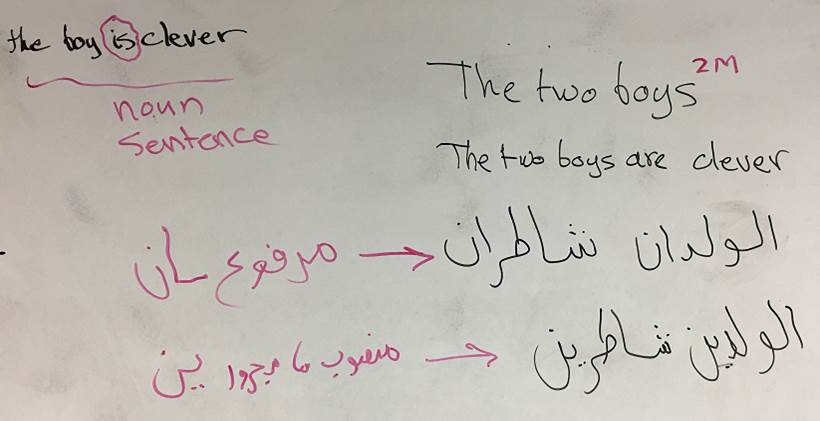 the boy is clever
noun
sentence
The two boys 2M
The two boys are clever
الولدان شاطران → مرفوع ـان
الولدين شاطرين → منصوب / مجرور ـين